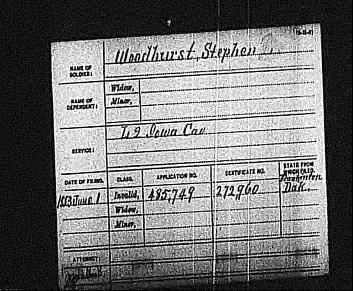 NAME OF SOLDIER: Woodhurst, Stephen
NAME OF DEPENDENT: Widow,
Minor,
SERVICE: L 9 Iowa Cav
DATE OF FILING. CLASS. APPLICATION NO. CERTIFICATE NO. STATE FROM WHICH FILED.
1883 June 1 Invalid, 485,749 272,960 Dak.
Widow,
Minor,
ATTORNEY: